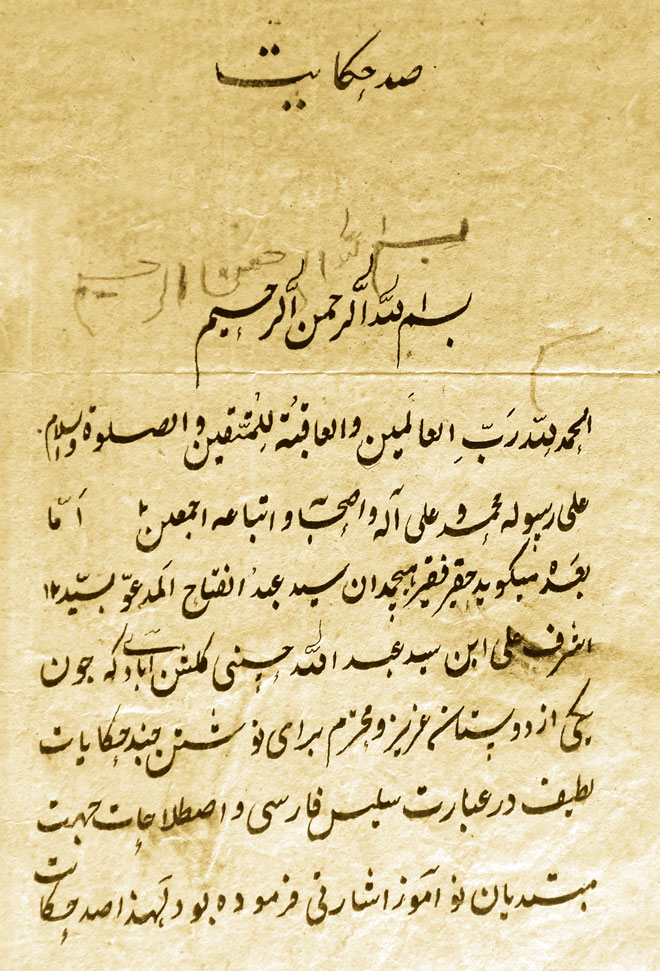 صد حکایت
بسم الله الرحمن الرحیم
بسم الله الرحمن الرحیم
الحمد لله رَبِّ العالمین والعاقبة للمتّقین والصلوة والسلام
علی رسوله محمد و علی آله واصحابه واتباعه اجمعین اَمّا
بعده میگوید حقیر فقیر هیچمدان سید عبد الفتاح المدعوّ بسیّد
اشرف علی ابن سید عبد الله حسینی گلشن آبادی که چون
یکی از دوستان عزیز و محترم برای نوشتن چند حکایات
لطیف در عبارت سلیس فارسی و اصطلاحات جهت
مبتدیان نو آموز اشارتی فرموده بود لهذا صد حکایت